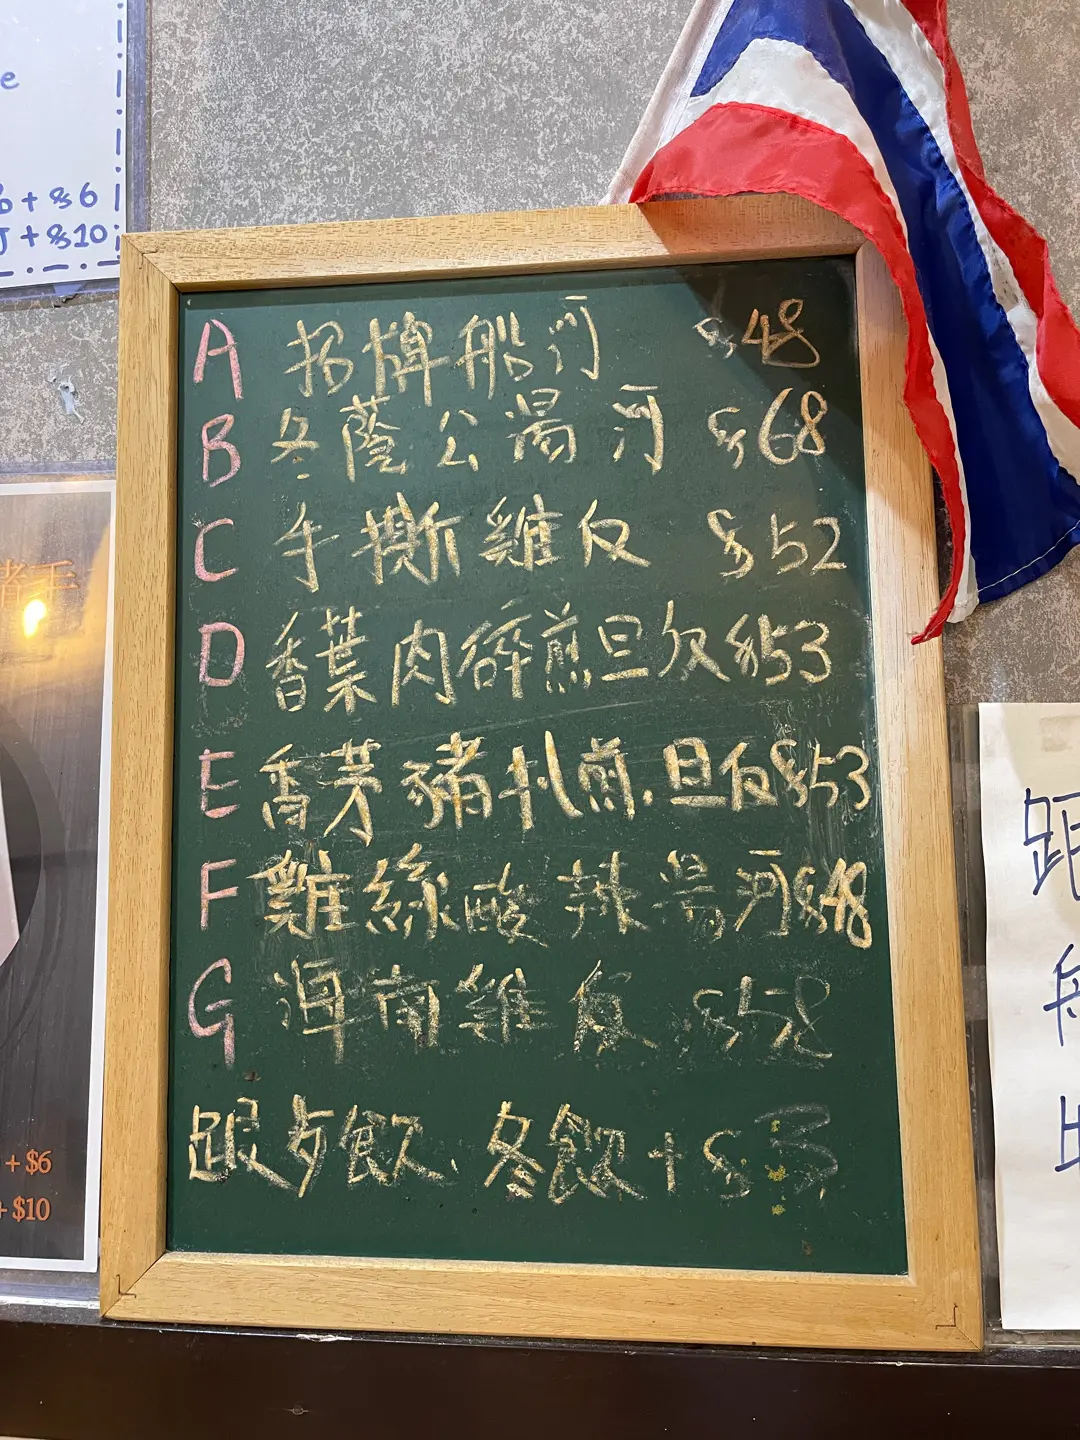 e
+ $6
+ $10
A 招牌船河 $48
B 冬蔭公湯河 $68
C 手撕雞反 $52
D 香葉肉碎煎旦反 $53
E 香茅豬扒煎旦反 $53
F 雞絲酸辣湯河 $48
G 海南雞反 $58
跟歺飲、冬飲+$3
豬手
+ $6
+ $10
跟